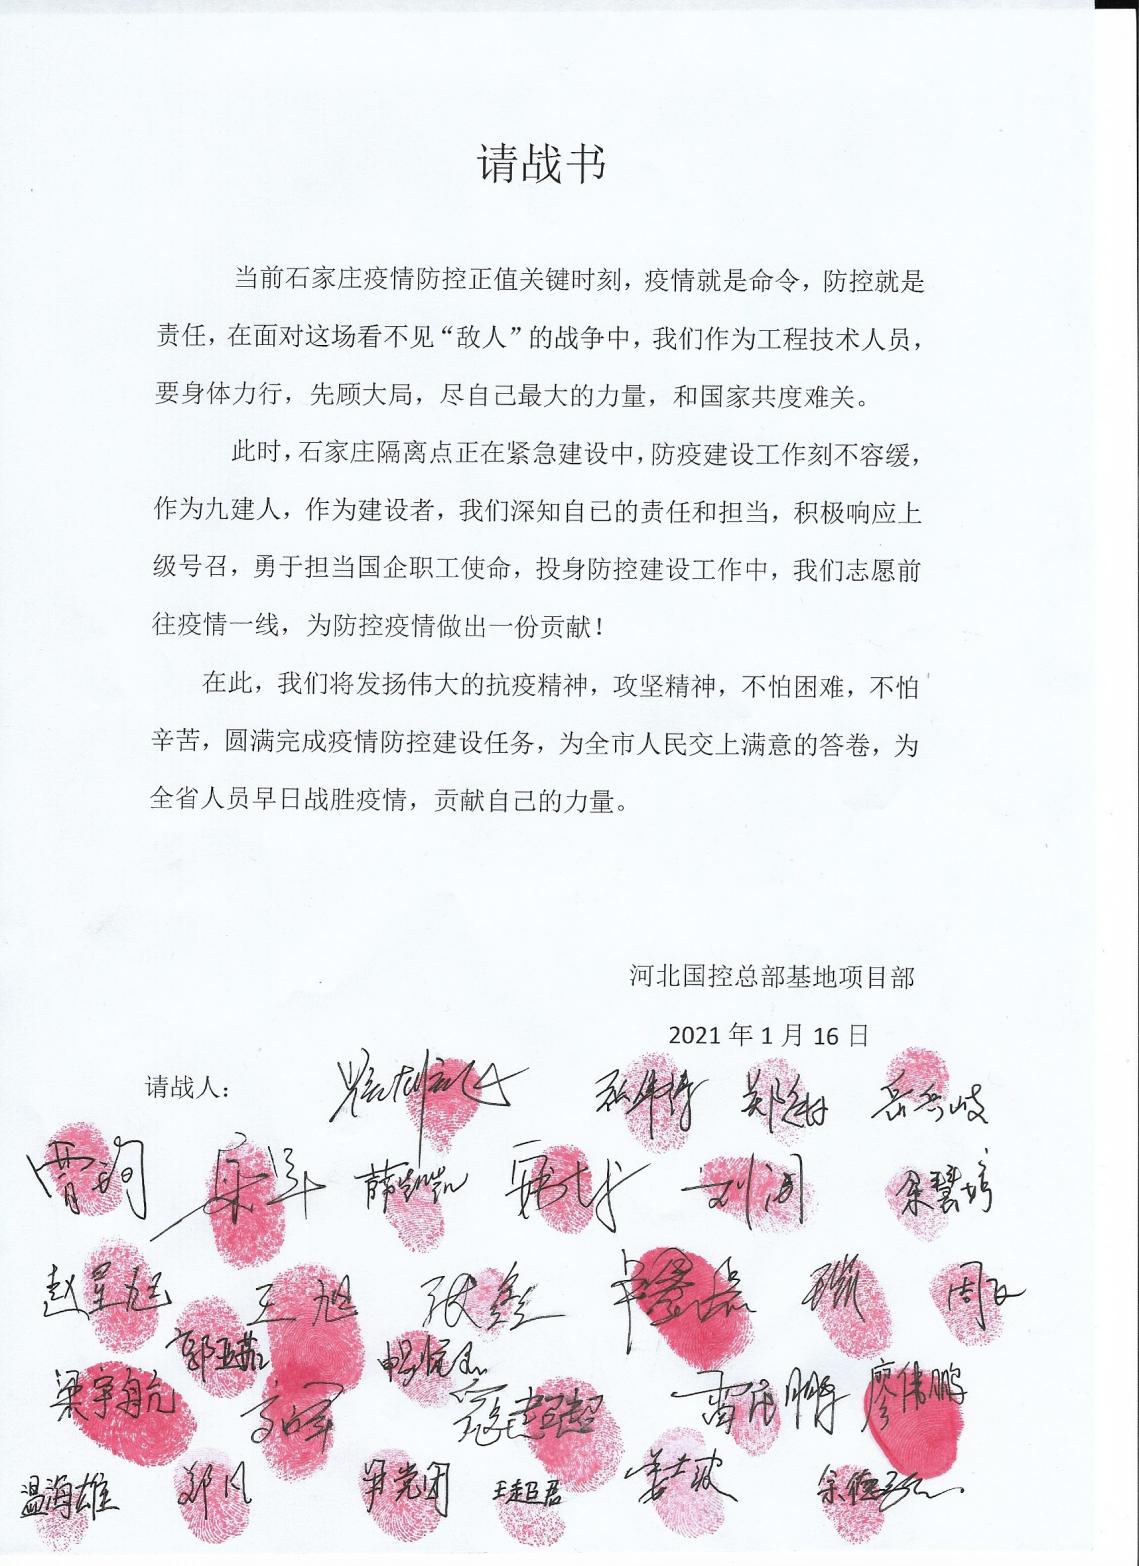 请战书
当前石家庄疫情防控正值关键时刻，疫情就是命令，防控就是
责任，在面对这场看不见“敌人”的战争中，我们作为工程技术人员，
要身体力行，先顾大局，尽自己最大的力量，和国家共度难关。
此时，石家庄隔离点正在紧急建设中，防疫建设工作刻不容缓，
作为九建人，作为建设者，我们深知自己的责任和担当，积极响应上
级号召，勇于担当国企职工使命，投身防控建设工作中，我们志愿前
往疫情一线，为防控疫情做出一份贡献！
在此，我们将发扬伟大的抗疫精神，攻坚精神，不怕困难，不怕
辛苦，圆满完成疫情防控建设任务，为全市人民交上满意的答卷，为
全省人员早日战胜疫情，贡献自己的力量。
河北国控总部基地项目部
2021 年 1 月 16 日
请战人：
余慧婷
赵星旭 王旭 张鑫
梁宇航 廖伟鹏
温海雄 郑凡 王超君